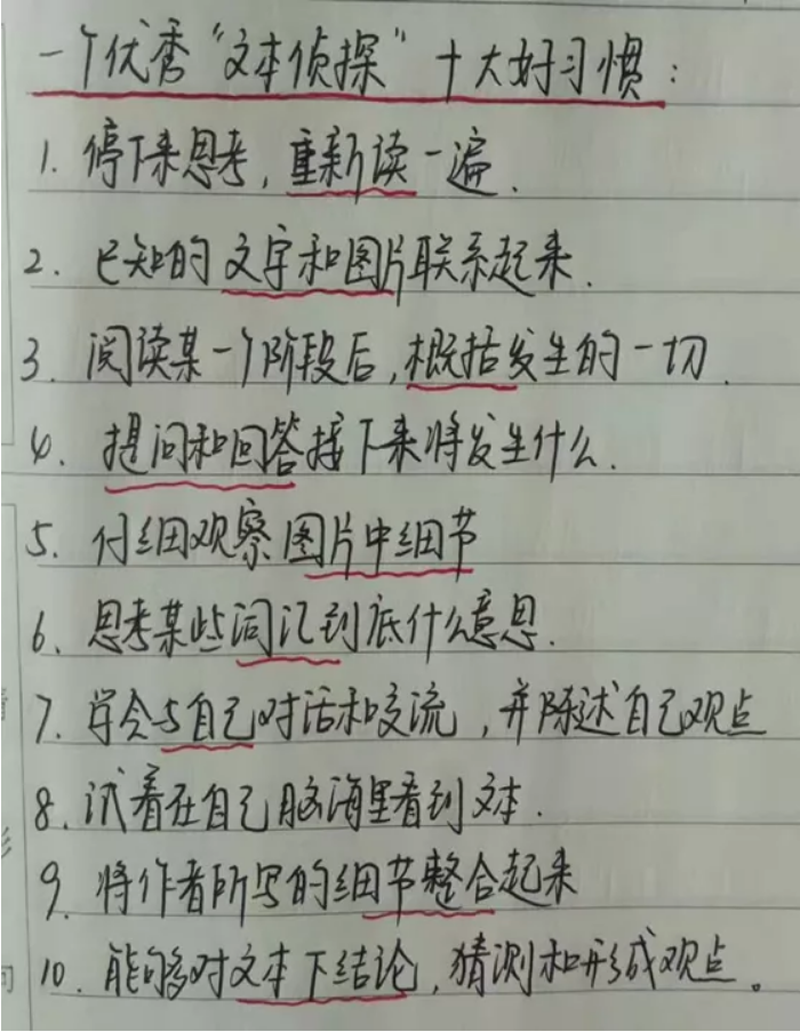 一个优秀“文本侦探”十大好习惯：
1. 停下来思考，重新读一遍.
2. 已知的文字和图片联系起来.
3. 阅读某一个阶段后，概括发生的一切.
4. 提问和回答接下来将发生什么.
5. 仔细观察图片中细节
6. 思考某些词汇到底什么意思.
7. 学会与自己对话和交流，并陈述自己观点
8. 试着在自己脑海里看到文本.
9. 将作者所写的细节整合起来
10. 能够对文本下结论，猜测和形成观点。